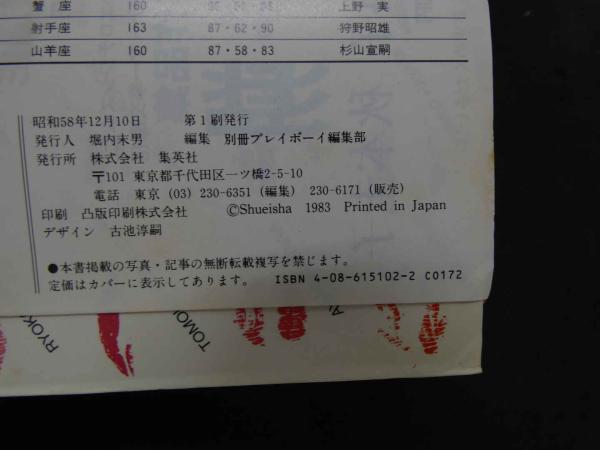 蟹 座 160 上野 実
射手座 163 87・62・90 狩野昭雄
山羊座 160 87・58・83 杉山宣嗣
昭和58年12月10日 第1刷発行
発行人 堀内末男 編集 別冊プレイボーイ編集部
発行所 株式会社 集英社
〒101 東京都千代田区一ツ橋2-5-10
電話 東京 (03) 230-6351 (編集) 230-6171 (販売)
印刷 凸版印刷株式会社 ©Shueisha 1983 Printed in Japan
デザイン 古池淳嗣
●本書掲載の写真・記事の無断転載複写を禁じます。
定価はカバーに表示してあります。 ISBN 4-08-615102-2 C0172
RYOK
TOMO